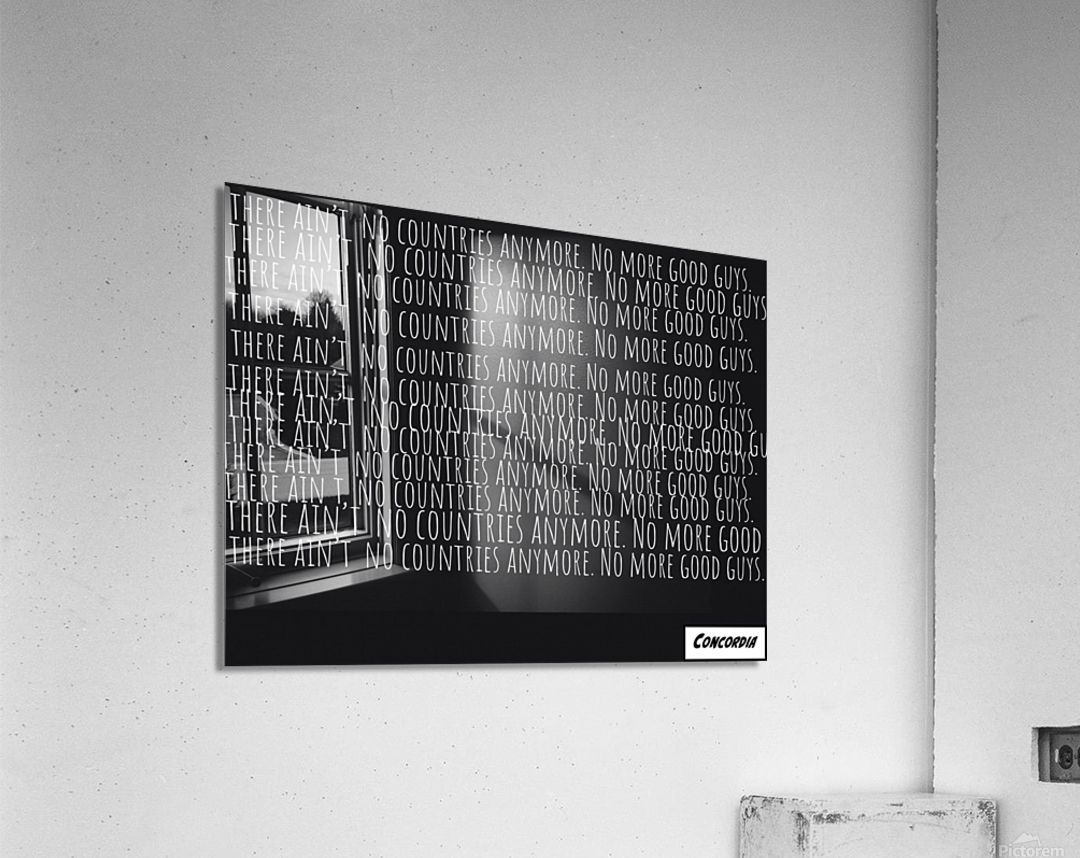 THERE AIN'T NO COUNTRIES ANYMORE. NO MORE GOOD GUYS.
THERE AIN'T NO COUNTRIES ANYMORE. NO MORE GOOD GUYS
THERE AIN'T NO COUNTRIES ANYMORE. NO MORE GOOD GUYS.
THERE AIN'T NO COUNTRIES ANYMORE. NO MORE GOOD GUYS.
THERE AIN'T NO COUNTRIES ANYMORE. NO MORE GOOD GUYS.
THERE AIN'T NO COUNTRIES ANYMORE. NO MORE GOOD GUYS.
THERE AIN'T NO COUNTRIES ANYMORE. NO MORE GOOD GU
THERE AIN'T NO COUNTRIES ANYMORE. NO MORE GOOD GUYS.
THERE AIN'T NO COUNTRIES ANYMORE. NO MORE GOOD GUYS.
THERE AIN'T NO COUNTRIES ANYMORE. NO MORE GOOD GUYS.
THERE AIN'T NO COUNTRIES ANYMORE. NO MORE GOOD
THERE AIN'T NO COUNTRIES ANYMORE. NO MORE GOOD GUYS.
CONCORDIA
Pictorem